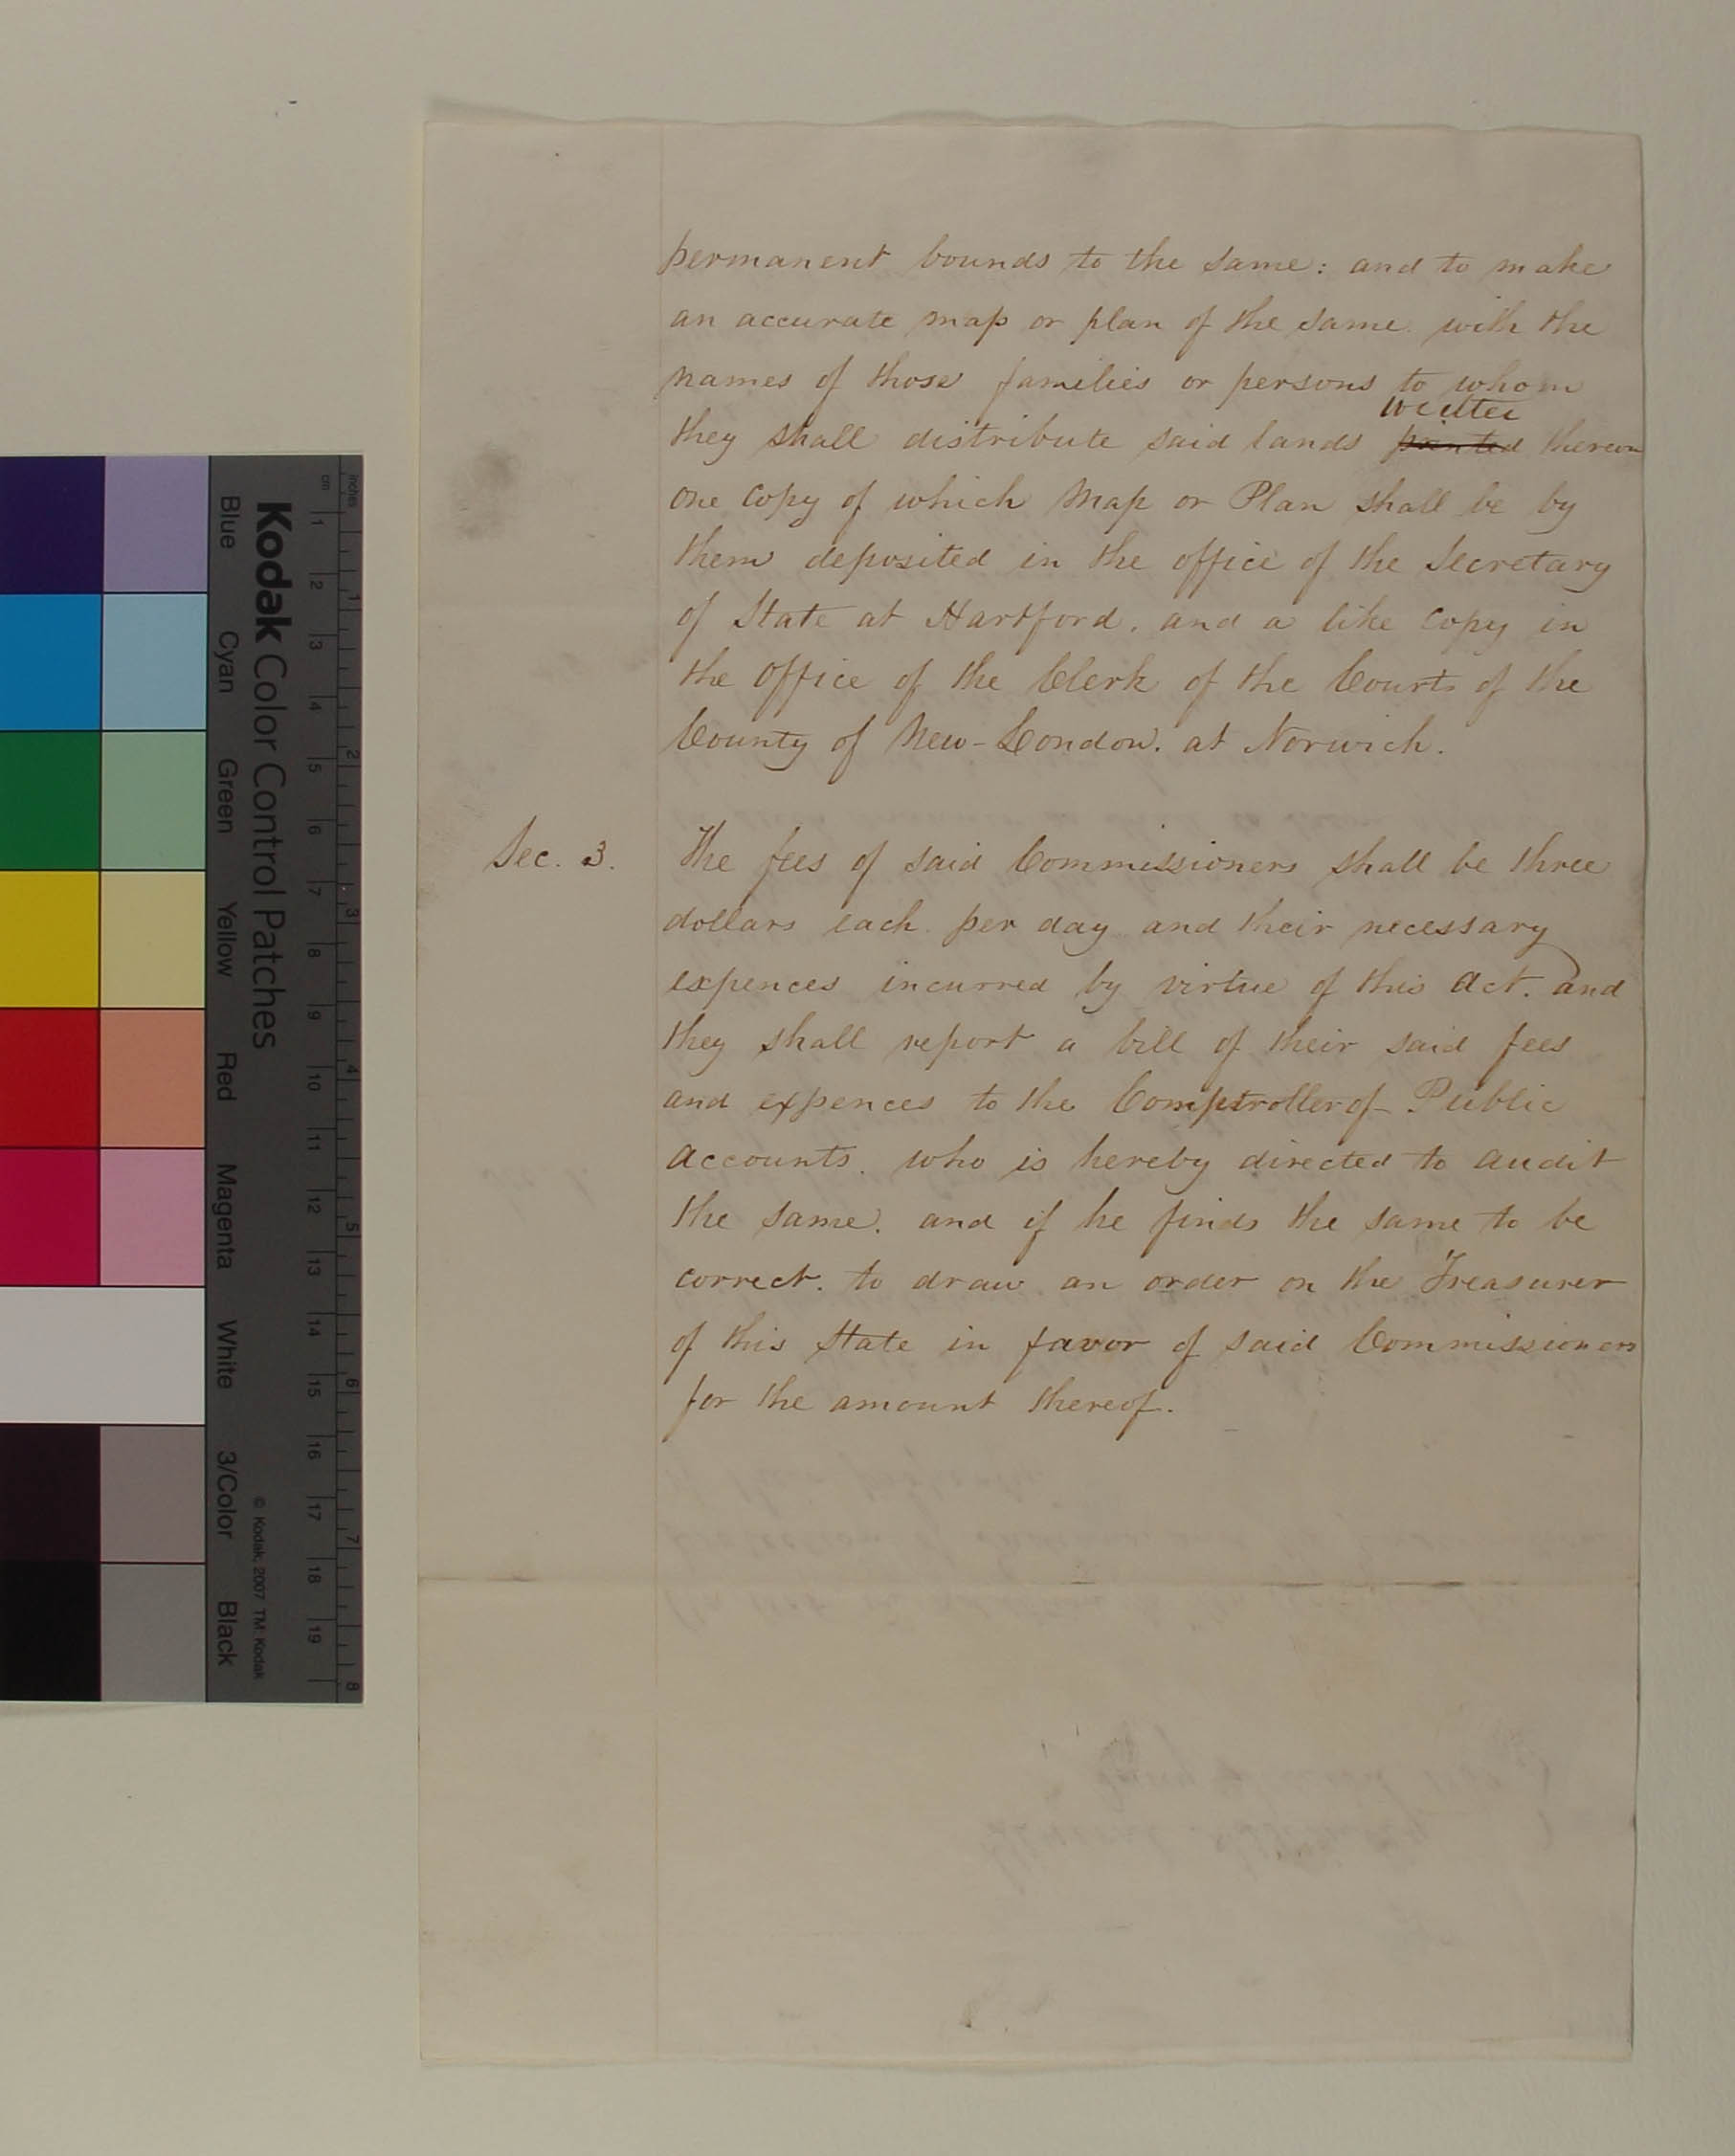 permanent bounds to the same: and to make
an accurate map or plan of the same. with the
names of those families or persons to whom
written
they shall distribute said lands printed thereon
one copy of which Map or Plan shall be by
them deposited in the office of the Secretary
of State at Hartford, and a like Copy in
the Office of the Clerk of the Courts of the
County of New-London. at Norwich.
Sec. 3. The fees of said Commissioners shall be three
dollars each per day and their necessary
expences incurred by virtue of this Act. and
they shall report a bill of their said fees
and expences to the Comptroller of Public
Accounts. who is hereby directed to audit
the same. and if he finds the same to be
correct. to draw an order on the Treasurer
of this State in favor of said Commissioners
for the amount thereof.
Kodak Color Control Patches
Blue Cyan Green Yellow Red Magenta White 3/Color Black
© Kodak, 2007 TM: Kodak
inches 1 2 3 4 5 6 7 8
cm 1 2 3 4 5 6 7 8 9 10 11 12 13 14 15 16 17 18 19